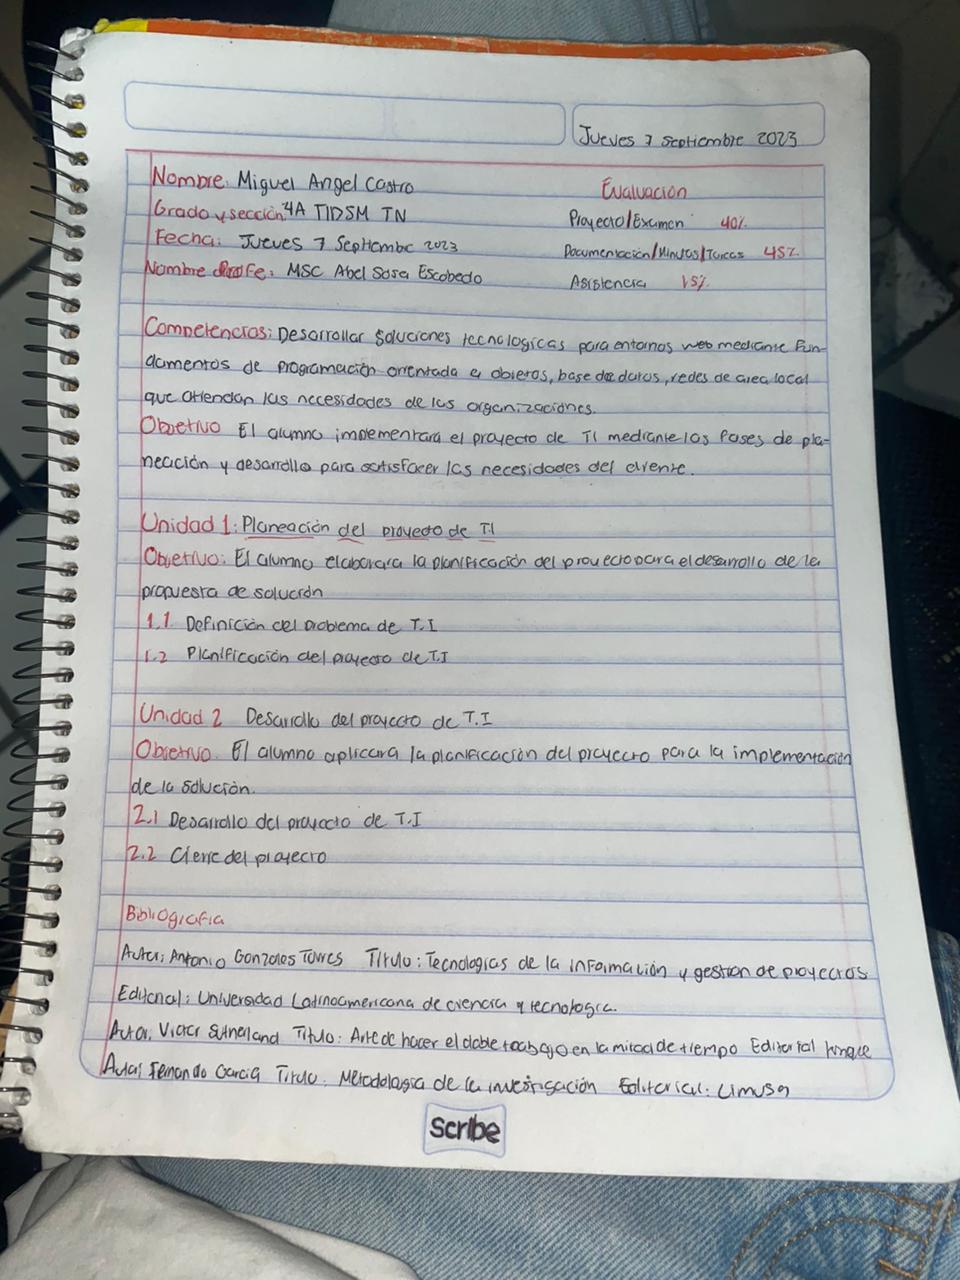 Jueves 7 Septiembre 2023
Nombre: Miguel Angel Castro
Evaluación
Grado y sección 4A TIDSM TN
Proyecto/Examen 40%
Fecha: Jueves 7 Septiembre 2023
Documentación/Minutas/Tareas 45%
Nombre Profe: MSC Abel Sosa Escobedo
Asistencia 15%
Competencias: Desarrollar soluciones tecnologicas para entornos web mediante Fun-
damentos de programación orientada a objetos, base de datos, redes de area local
que atiendan las necesidades de las organizaciones.
Objetivo El alumno implementara el proyecto de TI mediante las fases de pla-
neación y desarrollo para satisfacer las necesidades del cliente.
Unidad 1: Planeación del proyecto de TI
Objetivo: El alumno elaborara la planificación del proyecto para el desarrollo de la
propuesta de solución
1.1 Definición del problema de T.I
1.2 Planificación del proyecto de T.I
Unidad 2 Desarrollo del proyecto de T.I
Objetivo. El alumno aplicara la planificación del proyecto para la implementación
de la solución.
2.1 Desarrollo del proyecto de T.I
2.2 Cierre del proyecto
Bibliografia
Autor: Antonio Gonzales Torres Titulo: Tecnologias de la información y gestion de proyectos
Editorial: Universidad Latinoamericana de ciencia y tecnologia.
Autor: Victor Sutherland Titulo: Arte de hacer el doble trabajo en la mitad de tiempo Editorial
Autor Fernando Garcia Titulo: Metodologia de la investigación Editorial: Limusa
Scribe